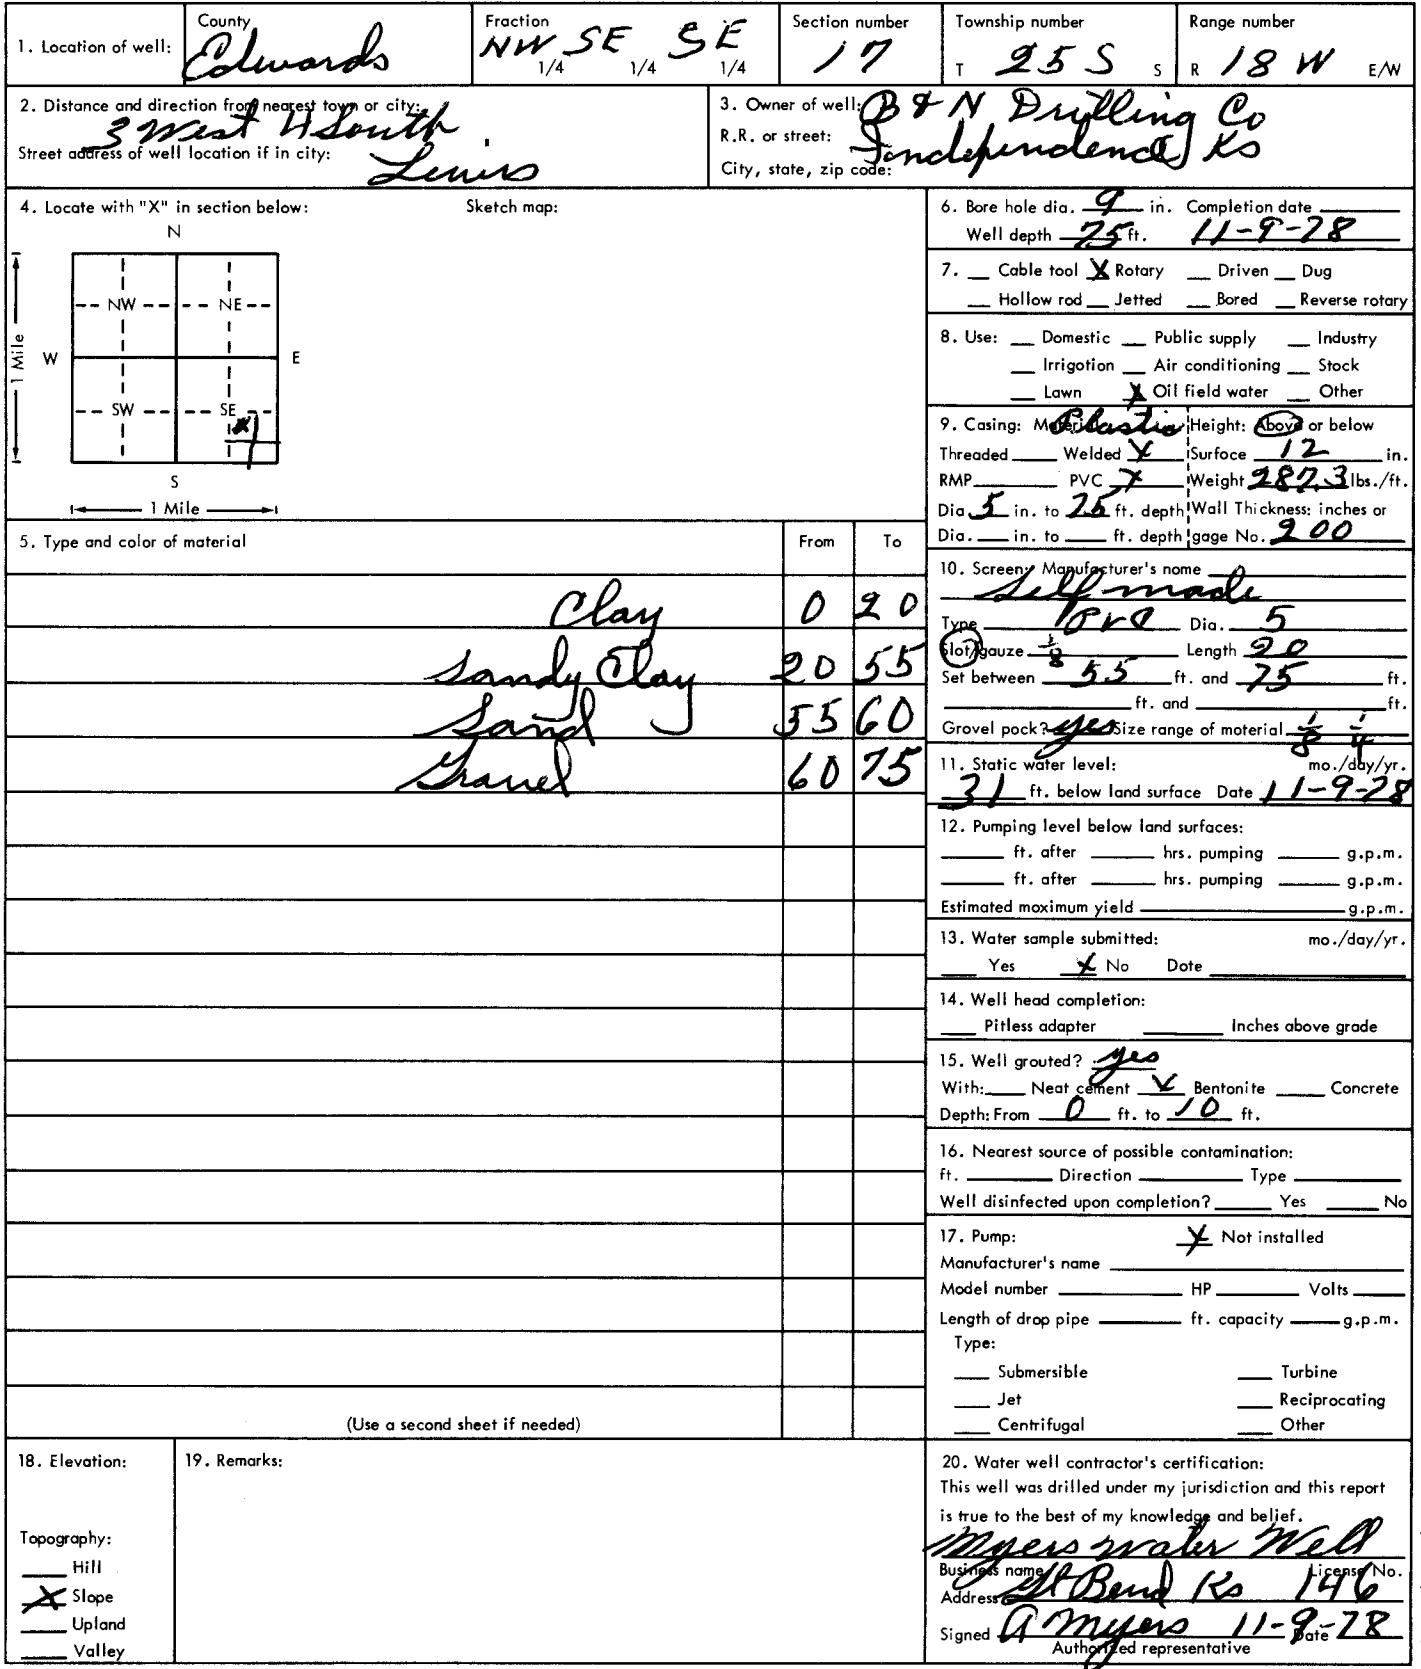 1. Location of well: County Edwards Fraction NW 1/4 SE 1/4 SE 1/4 Section number 17 Township number T 25 S S Range number R 18 W E/W
2. Distance and direction from nearest town or city: 3 West 4 South
Street address of well location if in city: Lewis
3. Owner of well: B & N Drilling Co
R.R. or street:
City, state, zip code: Independence, Ks
4. Locate with "X" in section below: Sketch map:
N
NW NE
W E
1 Mile
SW SE
X
S
1 Mile
5. Type and color of material From To
Clay 0 20
Sandy Clay 20 55
Sand 55 60
Gravel 60 75
(Use a second sheet if needed)
6. Bore hole dia. 9 in. Completion date
Well depth 75 ft. 11-9-78
7. Cable tool X Rotary Driven Dug
Hollow rod Jetted Bored Reverse rotary
8. Use: Domestic Public supply Industry
Irrigation Air conditioning Stock
Lawn X Oil field water Other
9. Casing: Material Plastic Height: Above or below
Threaded Welded X Surface 12 in.
RMP PVC X Weight 287.3 lbs./ft.
Dia. 5 in. to 75 ft. depth Wall Thickness: inches or
Dia. in. to ft. depth gage No. 200
10. Screen: Manufacturer's name
Self made
Type PVC Dia. 5
Slot/gauze 1/8 Length 20
Set between 55 ft. and 75 ft.
ft. and ft.
Gravel pack? yes Size range of material 1/8 1/4
11. Static water level: mo./day/yr.
31 ft. below land surface Date 11-9-78
12. Pumping level below land surfaces:
ft. after hrs. pumping g.p.m.
ft. after hrs. pumping g.p.m.
Estimated maximum yield g.p.m.
13. Water sample submitted: mo./day/yr.
Yes X No Date
14. Well head completion:
Pitless adapter Inches above grade
15. Well grouted? yes
With: Neat cement X Bentonite Concrete
Depth: From 0 ft. to 10 ft.
16. Nearest source of possible contamination:
ft. Direction Type
Well disinfected upon completion? Yes No
17. Pump: X Not installed
Manufacturer's name
Model number HP Volts
Length of drop pipe ft. capacity g.p.m.
Type:
Submersible Turbine
Jet Reciprocating
Centrifugal Other
18. Elevation:
Topography:
Hill
X Slope
Upland
Valley
19. Remarks:
20. Water well contractor's certification:
This well was drilled under my jurisdiction and this report
is true to the best of my knowledge and belief.
Myers Water Well
Business name License No.
Address Gt Bend Ks 146
Signed A Myers 11-9-78 Date
Authorized representative